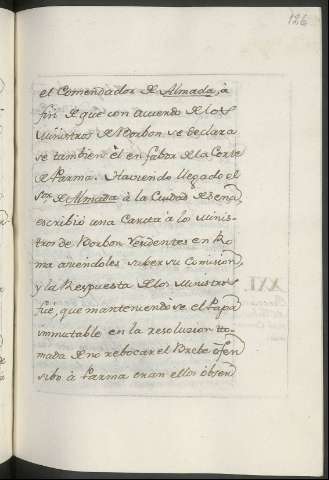 126
el Comendador de Almada, à
fin de que con acuerdo de los
Ministros de Borbon se declara
se tambien èl en fabor de la Corte
de Parma. Haviendo llegado el
Sor. de Almada à la Ciudad de Sena,
escribiò una Carta à los Minis-
tros de Borbon residentes en Ro
ma aviendoles saber su Comision,
y la Respuesta de los Ministros
fuè, que manteniendose el Papa
immutable en la resoluzion to-
mada de no rebocar el Brebe ofen
sibo à Parma eran ellos obser
XVI.